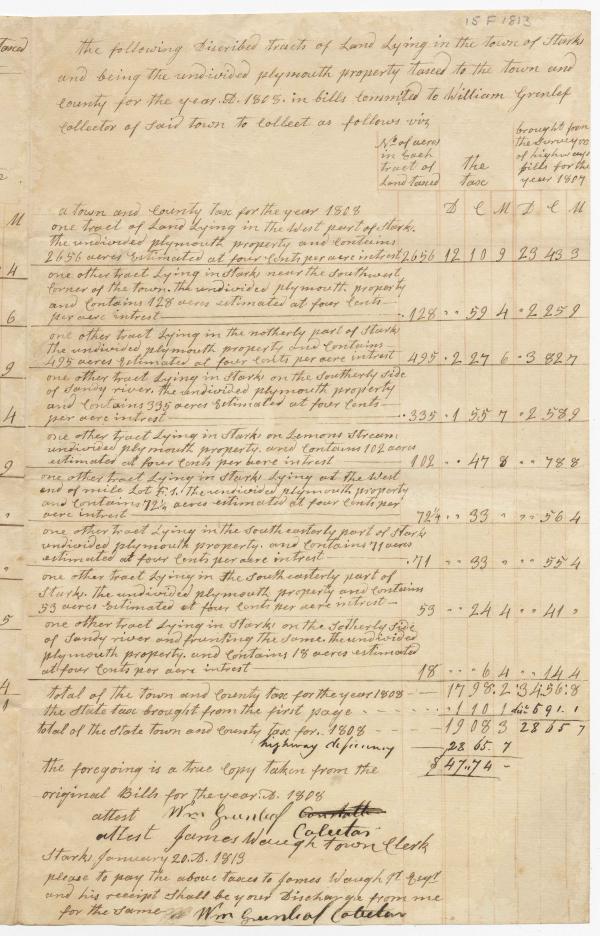 15 F 1813
the following Discribed tracts of Land Lying in the town of Starks
and being the undivided plymouth property taxed to the town and
County for the year.D. 1808. in bills Committed to William Grenlef
Collector of Said town to Collect as follows viz
No of acres in Each tract of Land taxed
the tax
brought from the Surveyors of highways bills for the year 1807
D C M D C M
a town and County tax for the year 1808
one tract of Land Lying in the West part of Stark.
the undivided plymouth property and Contains
2656 acres Estimated at four Cents per acre interest 2656 12 10 9 23 43 3
one other tract Lying in Stark near the Southwest
Corner of the town. the undivided plymouth property
and Contains 128 acres estimated at four Cents
per acre intrest 128 59 4 2 25 9
one other tract Lying in the notherly part of Stark
the undivided plymouth property and Contains
495 acres Estimated at four Cents per acre intrest 495 2 27 6 3 82 7
one other tract Lying in Stark on the Southerly Side
of Sandy river. the undivided plymouth property
and Contains 335 acres Estimated at four Cents
per acre intrest 335 1 55 7 2 58 9
one other tract Lying in Stark on Lemons Stream
undivided plymouth property. and Contains 102 acres
estimated at four Cents per acre intrest 102 47 8 78 8
one other tract Lying in Stark Lying at the West
end of mile Lot F:1. the undivided plymouth property
and Contains 72¼ acres estimated at four Cents per
acre intrest 72¼ 33 " 56 4
one other tract Lying in the South easterly part of Stark
undivided plymouth property. and Contains 71 acres
estimated at four Cents per acre intrest 71 33 " 55 4
one other tract Lying in the South easterly part of
Stark. the undivided plymouth property and Contains
53 acres Estimated at four Cents per acre intrest 53 24 4 41 "
one other tract Lying in Stark on the Sotherly Side
of Sandy river and frunting the Same. the undivided
plymouth property. and Contains 18 acres estimated
at four Cents per acre intrest 18 6 4 14 4
total of the town and County tax for the year 1808 17 98 2 34 56 8
the State tax brought from the first page 1 10 1 5 91 1
total of the State town and County tax for. 1808 19 08 3 28 65 7
highway deficiency 28 65 7
$ 47.74 -
the foregoing is a true Copy taken from the
original Bills for the year.D. 1808
attest Wm Greenleaf
Colector
attest James Waugh town Clerk
Stark January 20.D. 1813
please to pay the above taxes to James Waugh
and his receipt Shall be your Discharge from me
for the Same Wm Greenleaf Colector